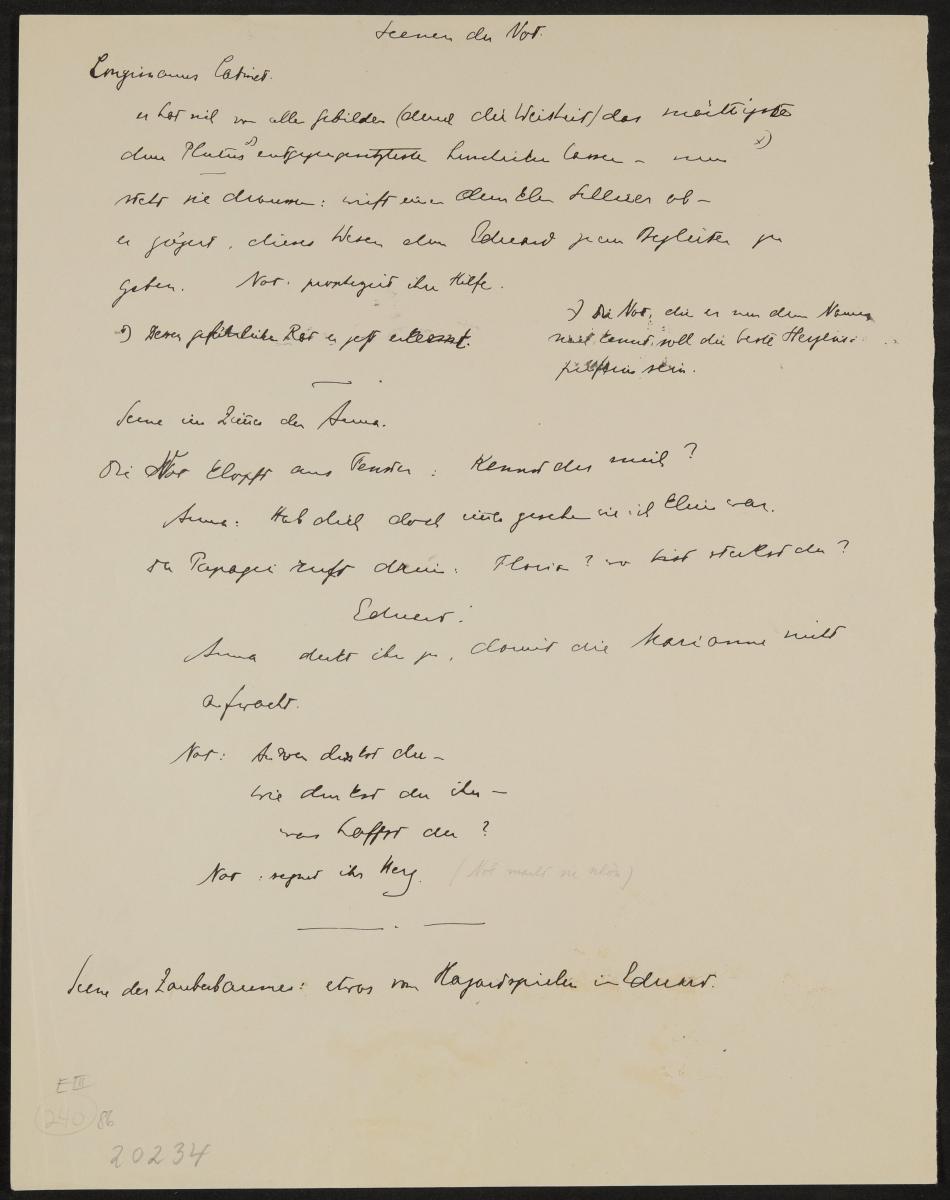 Scenen der Not.
Longimanus Cabinet.
er hat sich von allen Gebilden (durch die Weisheit) das mächtigste
dem Plutus °) entgegengesetzteste hereinbitten lassen – nun x)
steht sie draussen: wirft einen dunklen Schleier ab –
er zögert, dieses Wesen dem Eduard zum Begleiter zu
geben. Not. prophezeit ihre Hilfe.
°) Dessen gefährlichen Rat er jetzt erkennt.
x) Die Not, die er nur dem Namen
nach kennt, soll die beste
sein.
Scene im Zimer der Anna.
Die Not klopft ans Fenster: Kennst du mich?
Anna: Hab dich doch imer gesehen wie ich klein war.
Der Papagei ruft drein: Florian? wo bist steckst du?
Eduard!
Anna deckt ihn zu, damit die Marianne nicht
aufwacht.
Not: An wen denkst du –
wie denkst du ihn –
was hoffst du?
Not: segnet ihr Herz. (Not macht sie schön)
Scene des Zauberbaumes: etwas vom Hazardspieler in Eduard.
E III
240 86
20234